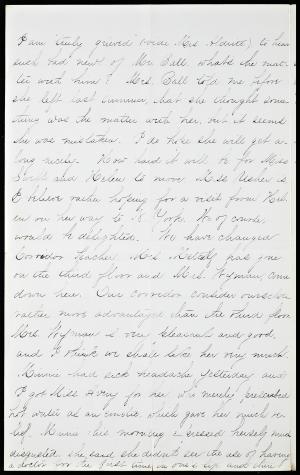 I am truly grieved (voice Mrs. Howe) to hear
such bad news of Mr. Ball. what's the mat-
ter with him? Mrs. Ball told me before
she left last summer, that she thought some-
thing was the matter with her, but it seems
she was mistaken. I do hope she will get a-
long nicely. How hard it will be for Miss
Swift and Helen to move. Rose Usher is
I believe rather hoping for a visit from Hel-
en on her way to N. York. We of course
would be delighted. We have changed
Corridor teacher. Mrs. has gone
on the third floor and Mrs. Wyman, come
down here. Our corridor consider ourselves
rather more advantaged than the third floor
Mrs. Wyman is very pleasant and good,
and I think we shall like her very much.
Minnie had sick headache yesterday and
I got Miss Avery for her, who merely prescribed
hot water as an emetic, which gave her much re-
lief. Minnie this morning expressed herself much
disgusted. she said she didn't see the use of having
a doctor for the first time, in one's life and